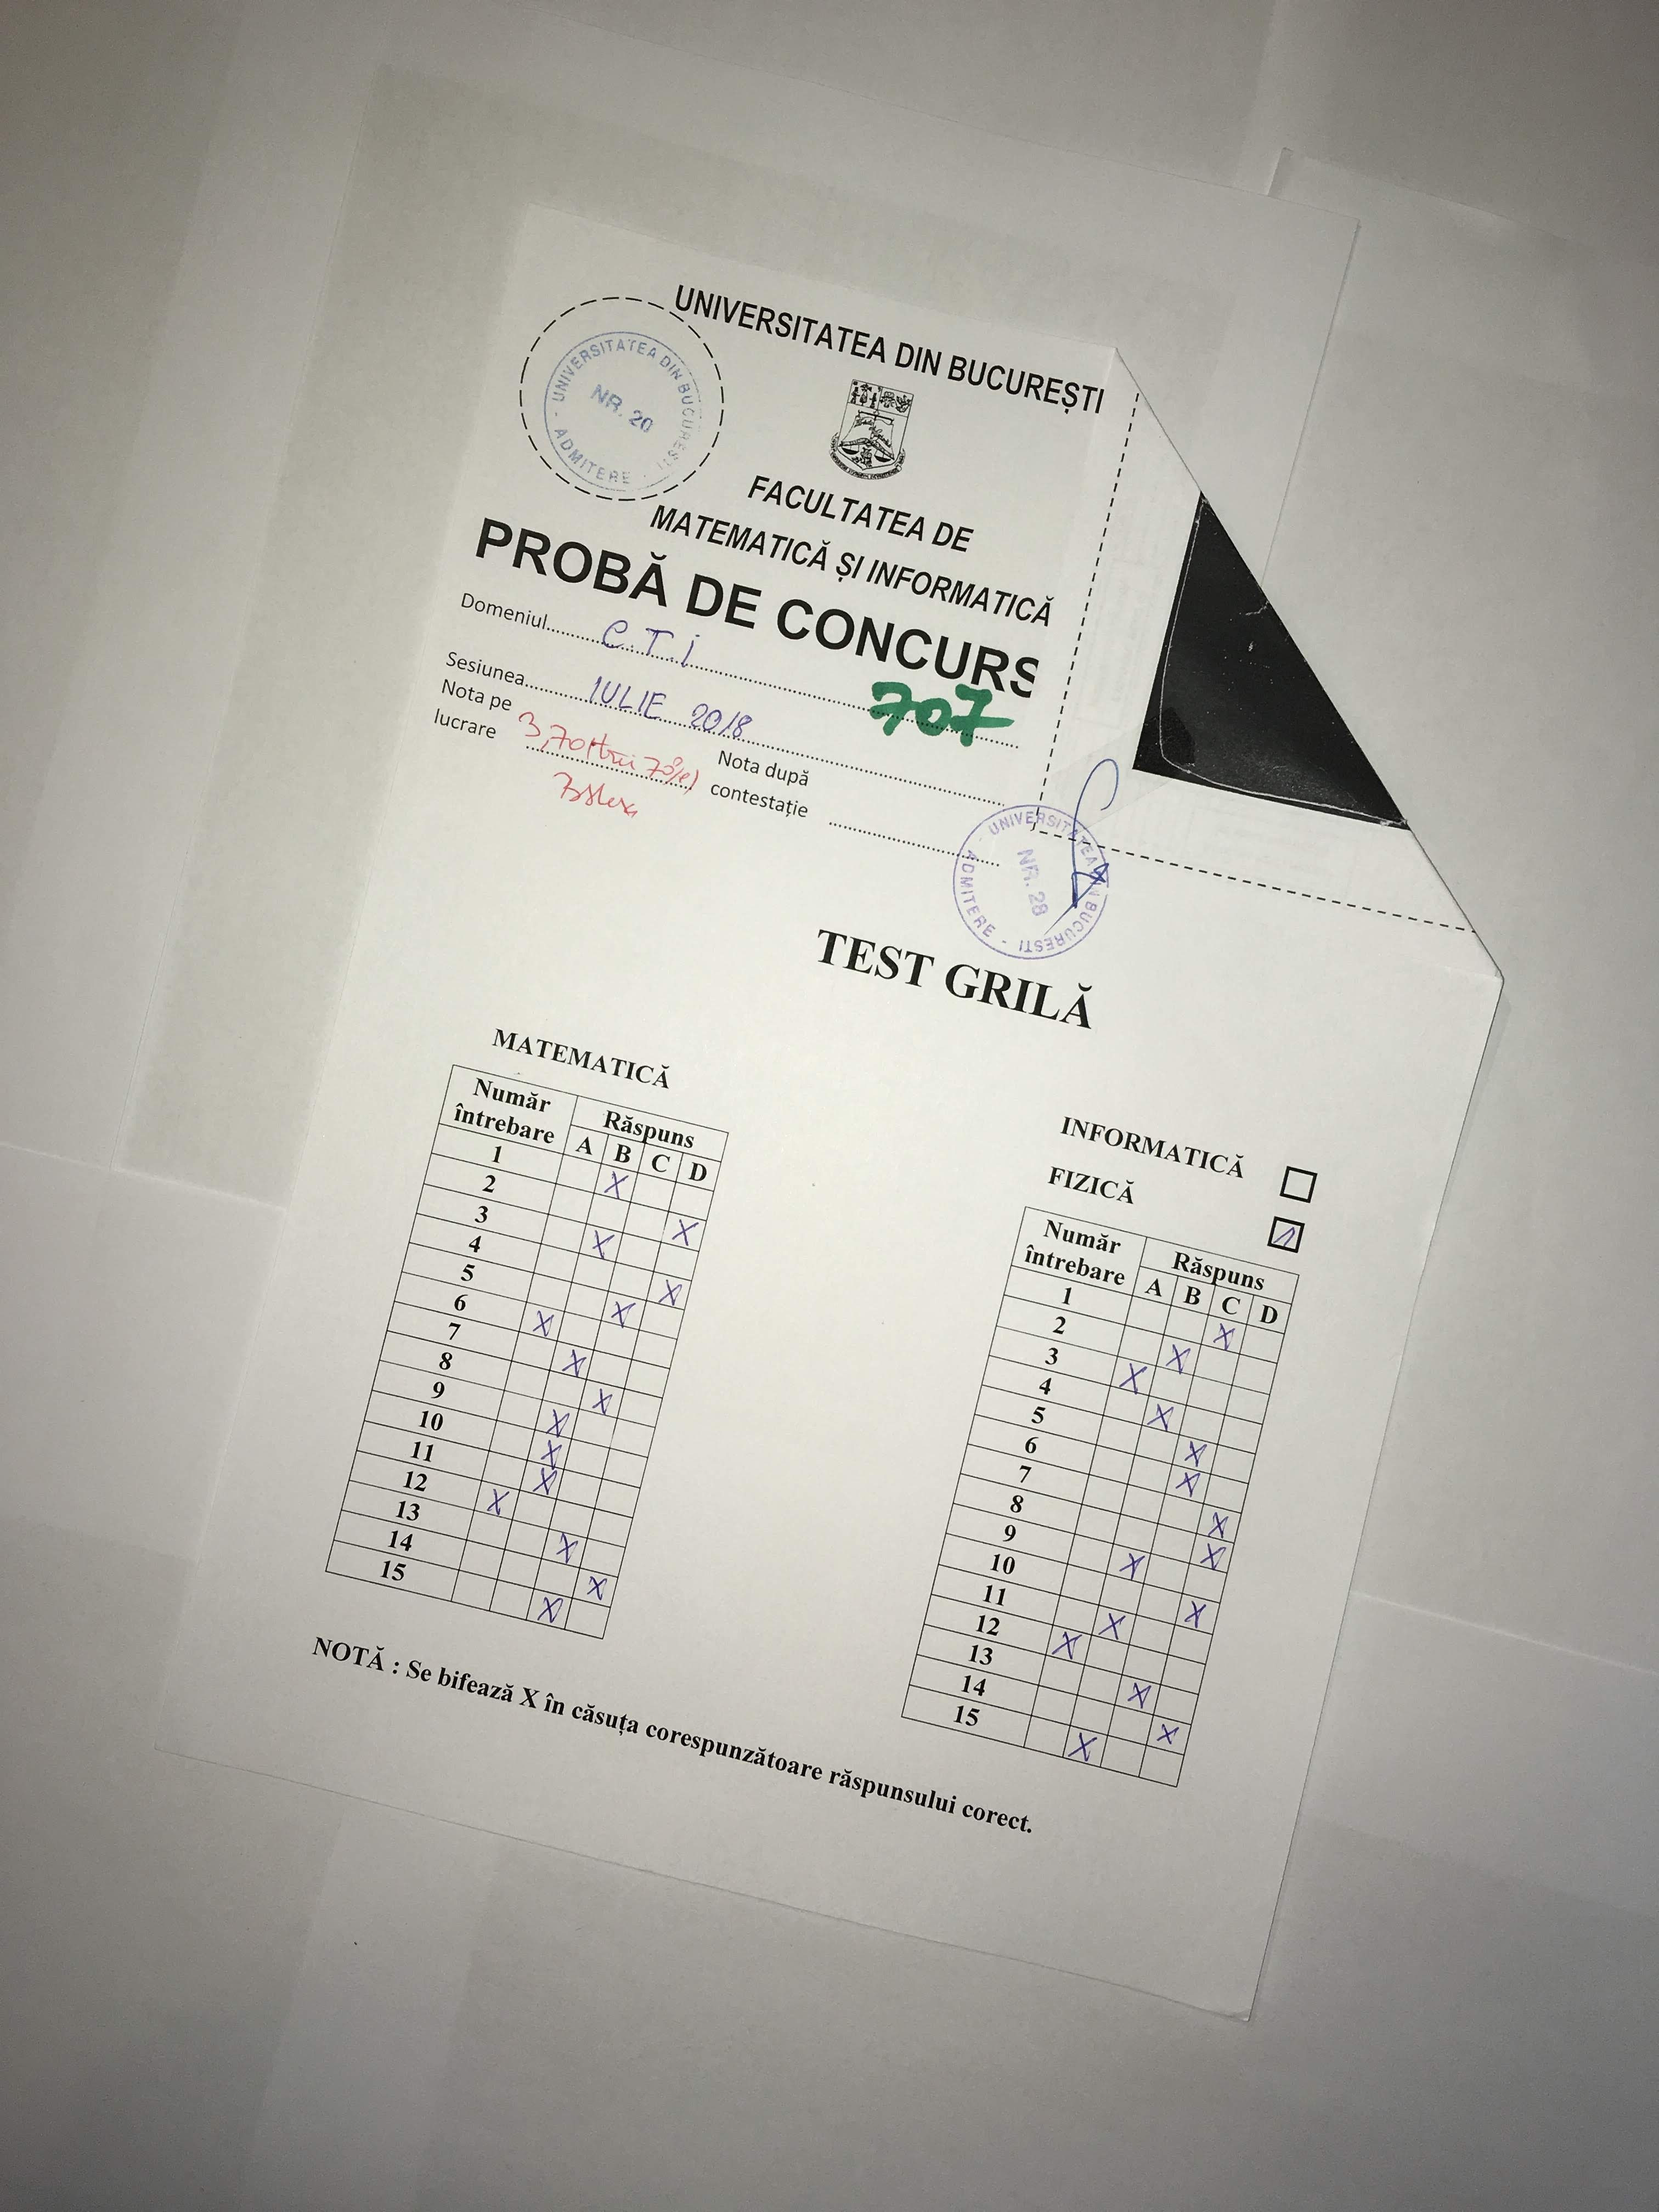 UNIVERSITATEA DIN BUCUREȘTI
UNIVERSITATEA DIN BUCURESTI - ADMITERE -
NR. 20
FACULTATEA DE
MATEMATICĂ ȘI INFORMATICĂ
PROBĂ DE CONCURS
Domeniul C.T.I
707
Sesiunea IULIE 2018
Nota pe lucrare 3,70 (trei 70%)
Nota după contestație
UNIVERSITATEA DIN BUCURESTI - ADMITERE -
NR. 28
TEST GRILĂ
MATEMATICĂ
Număr întrebare Răspuns
A B C D
1 X
2 X
3 X
4 X
5 X
6 X
7 X
8 X
9 X
10 X
11 X
12 X
13 X
14 X
15 X
INFORMATICĂ
FIZICĂ
Număr întrebare Răspuns
A B C D
1 X
2 X
3 X
4 X
5 X
6 X
7 X
8 X
9 X
10 X
11 X
12 X
13 X
14 X
15 X
NOTĂ : Se bifează X în căsuța corespunzătoare răspunsului corect.